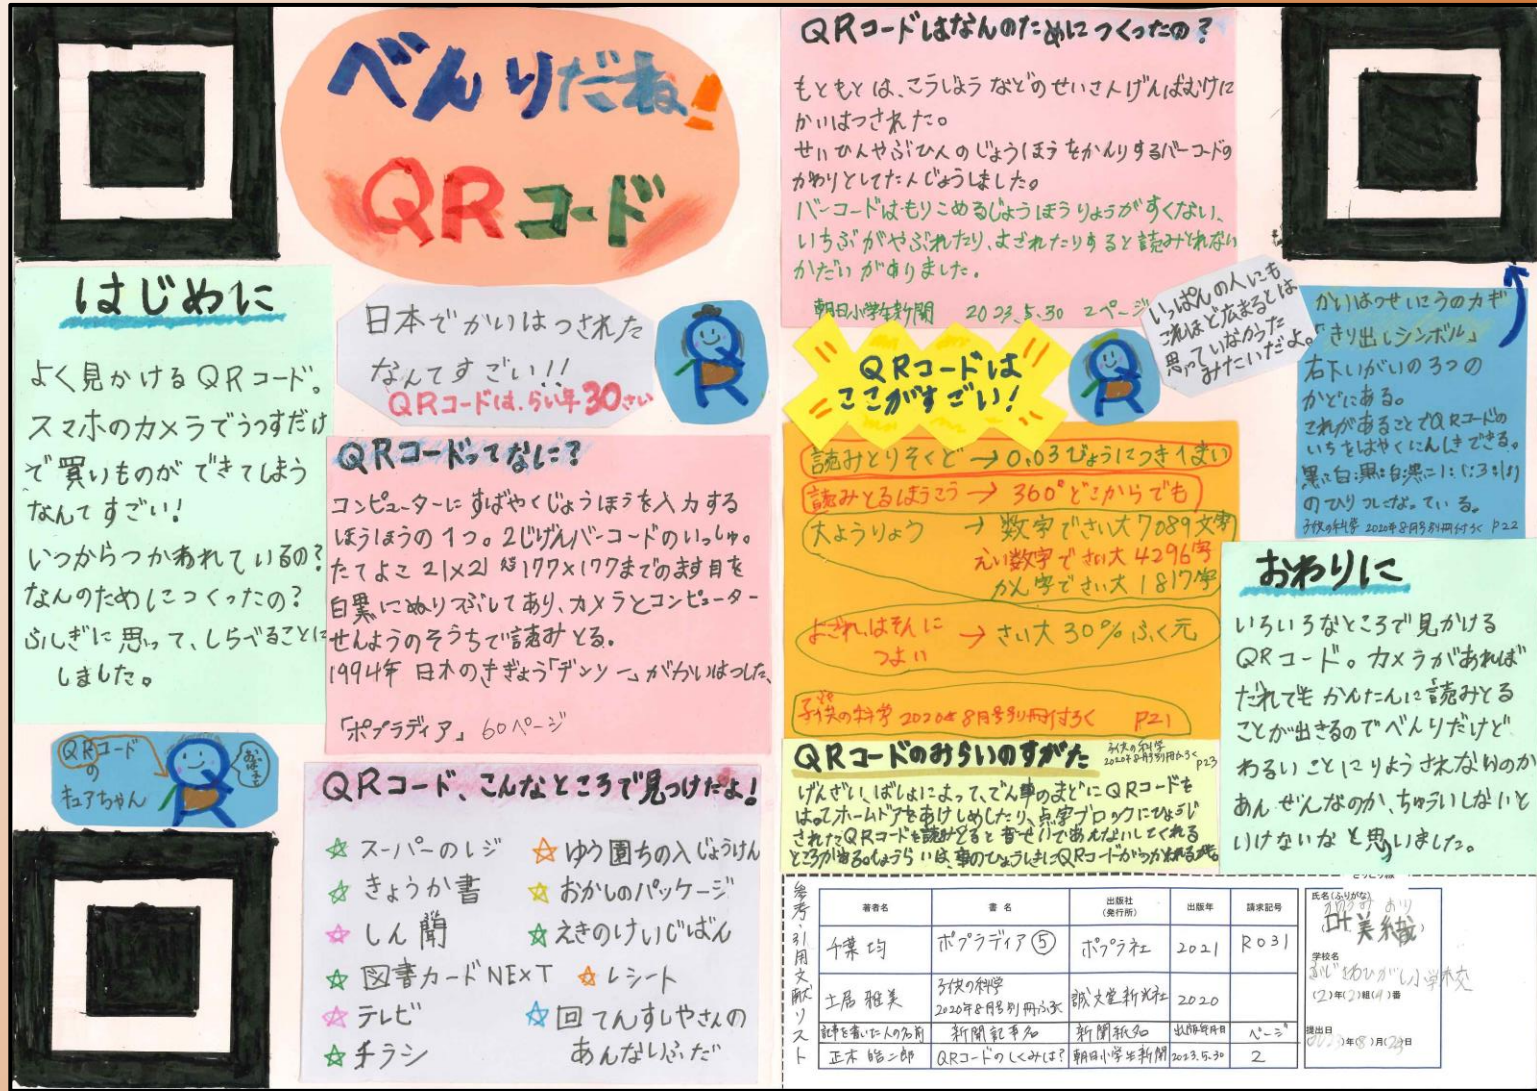 べんりだね!
QRコード
はじめに
よく見かけるQRコード。
スマホのカメラでうつすだけ
で買いものができてしまう
なんてすごい!
いつからつかわれているの?
なんのためにつくったの?
ふしぎに思って、しらべることに
しました。
QRコード
の
キュアちゃん
日本でかいはつされた
なんてすごい!!
QRコードは、らい年30さい
QRコードってなに?
コンピューターにすばやくじょうほうを入力する
ほうほうの1つ。2じげんバーコードのいっしゅ。
たてよこ 21×21 から177×177までのます目を
白黒にぬりつぶしてあり、カメラとコンピューター
せんようのそうちで読みとる。
1994年 日本のきぎょう「デンソー」がかいはつした。
「ポプラディア」60ページ
QRコード、こんなところで見つけたよ!
☆ スーパーのレジ
☆ きょうか書
☆ しん聞
☆ 図書カードNEXT
☆ テレビ
☆ チラシ
☆ ゆう園ちの入じょうけん
☆ おかしのパッケージ
☆ えきのけいじばん
☆ レシート
☆ 回てんすしやさんの
あんないふだ
QRコードはなんのためにつくったの?
もともとは、こうじょうなどのせいさんげんばむけに
かいはつされた。
せいひんやぶひんのじょうほうをかんりするバーコードの
かわりとしてたんじょうしました。
バーコードはもりこめるじょうほうりょうがすくない、
いちぶがやぶれたり、よごれたりすると読みとれない
かだいがありました。
朝日小学生新聞 2023.5.30 2ページ
いっぱんの人にも
これほど広まるとは
思っていなかった
みたいだよ。
かいはつせいこうのカギ
「きり出しシンボル」
右下いがいの3つの
かどにある。
これがあることでQRコードの
いちをはやくにんしきできる。
黒:白:黒:白:黒=1:1:3:1:1
のひりつになっている。
子供の科学 2020年8月号別冊付ろく P22
QRコードは
ここがすごい!
読みとりそくど→0.03びょうにつき1まい
読みとるほうこう→360°どこからでも
大ようりょう →数字でさい大7089文字
えい数字でさい大4296字
かん字でさい大1817字
よごれ、はそんに
つよい →さい大30%ふく元
子供の科学 2020年8月号別冊付ろく P21
QRコードのみらいのすがた
子供の科学
2020年8月号別冊ふろく P23
げんざい、ばしょによって、でん車のまどにQRコードを
はってホームドアをあけしめしたり、点字ブロックにひょうじ
されたQRコードを読みとると音せいであんないしてくれる
ところがある。しょうらいは、車のひょうしきにQRコードがつかわれるかも。
おわりに
いろいろなところで見かける
QRコード。カメラがあれば
だれでもかんたんに読みとる
ことが出きるのでべんりだけど
わるいことにりようされないのか
あんぜんなのか、ちゅういしないと
いけないなと思いました。
参考・引用文献リスト
著者名 書名 出版社(発行所) 出版年 請求記号
千葉均 ポプラディア⑤ ポプラ社 2021 R031
土居雅美 子供の科学 2020年8月号別冊ふろく 誠文堂新光社 2020
記事を書いた人の名前 新聞記事名 新聞紙名 出版年月日 ページ
正木皓二郎 QRコードのしくみは? 朝日小学生新聞 2023.5.30 2
氏名(ふりがな)
学校名
ふじさわひがし小学校
(2)年(2)組(9)番
提出日